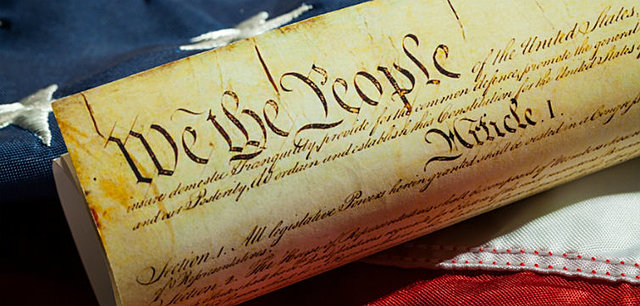 We the People
of the United States
insure domestic Tranquility, provide for the common defence, promote the general
and our Posterity, do ordain and establish this Constitution for the United States of
Article. I.
Section. 1. All legislative Powers herein granted shall be vested in a Congress
of Representatives.
Section. 2. The House of Representatives shall be composed of